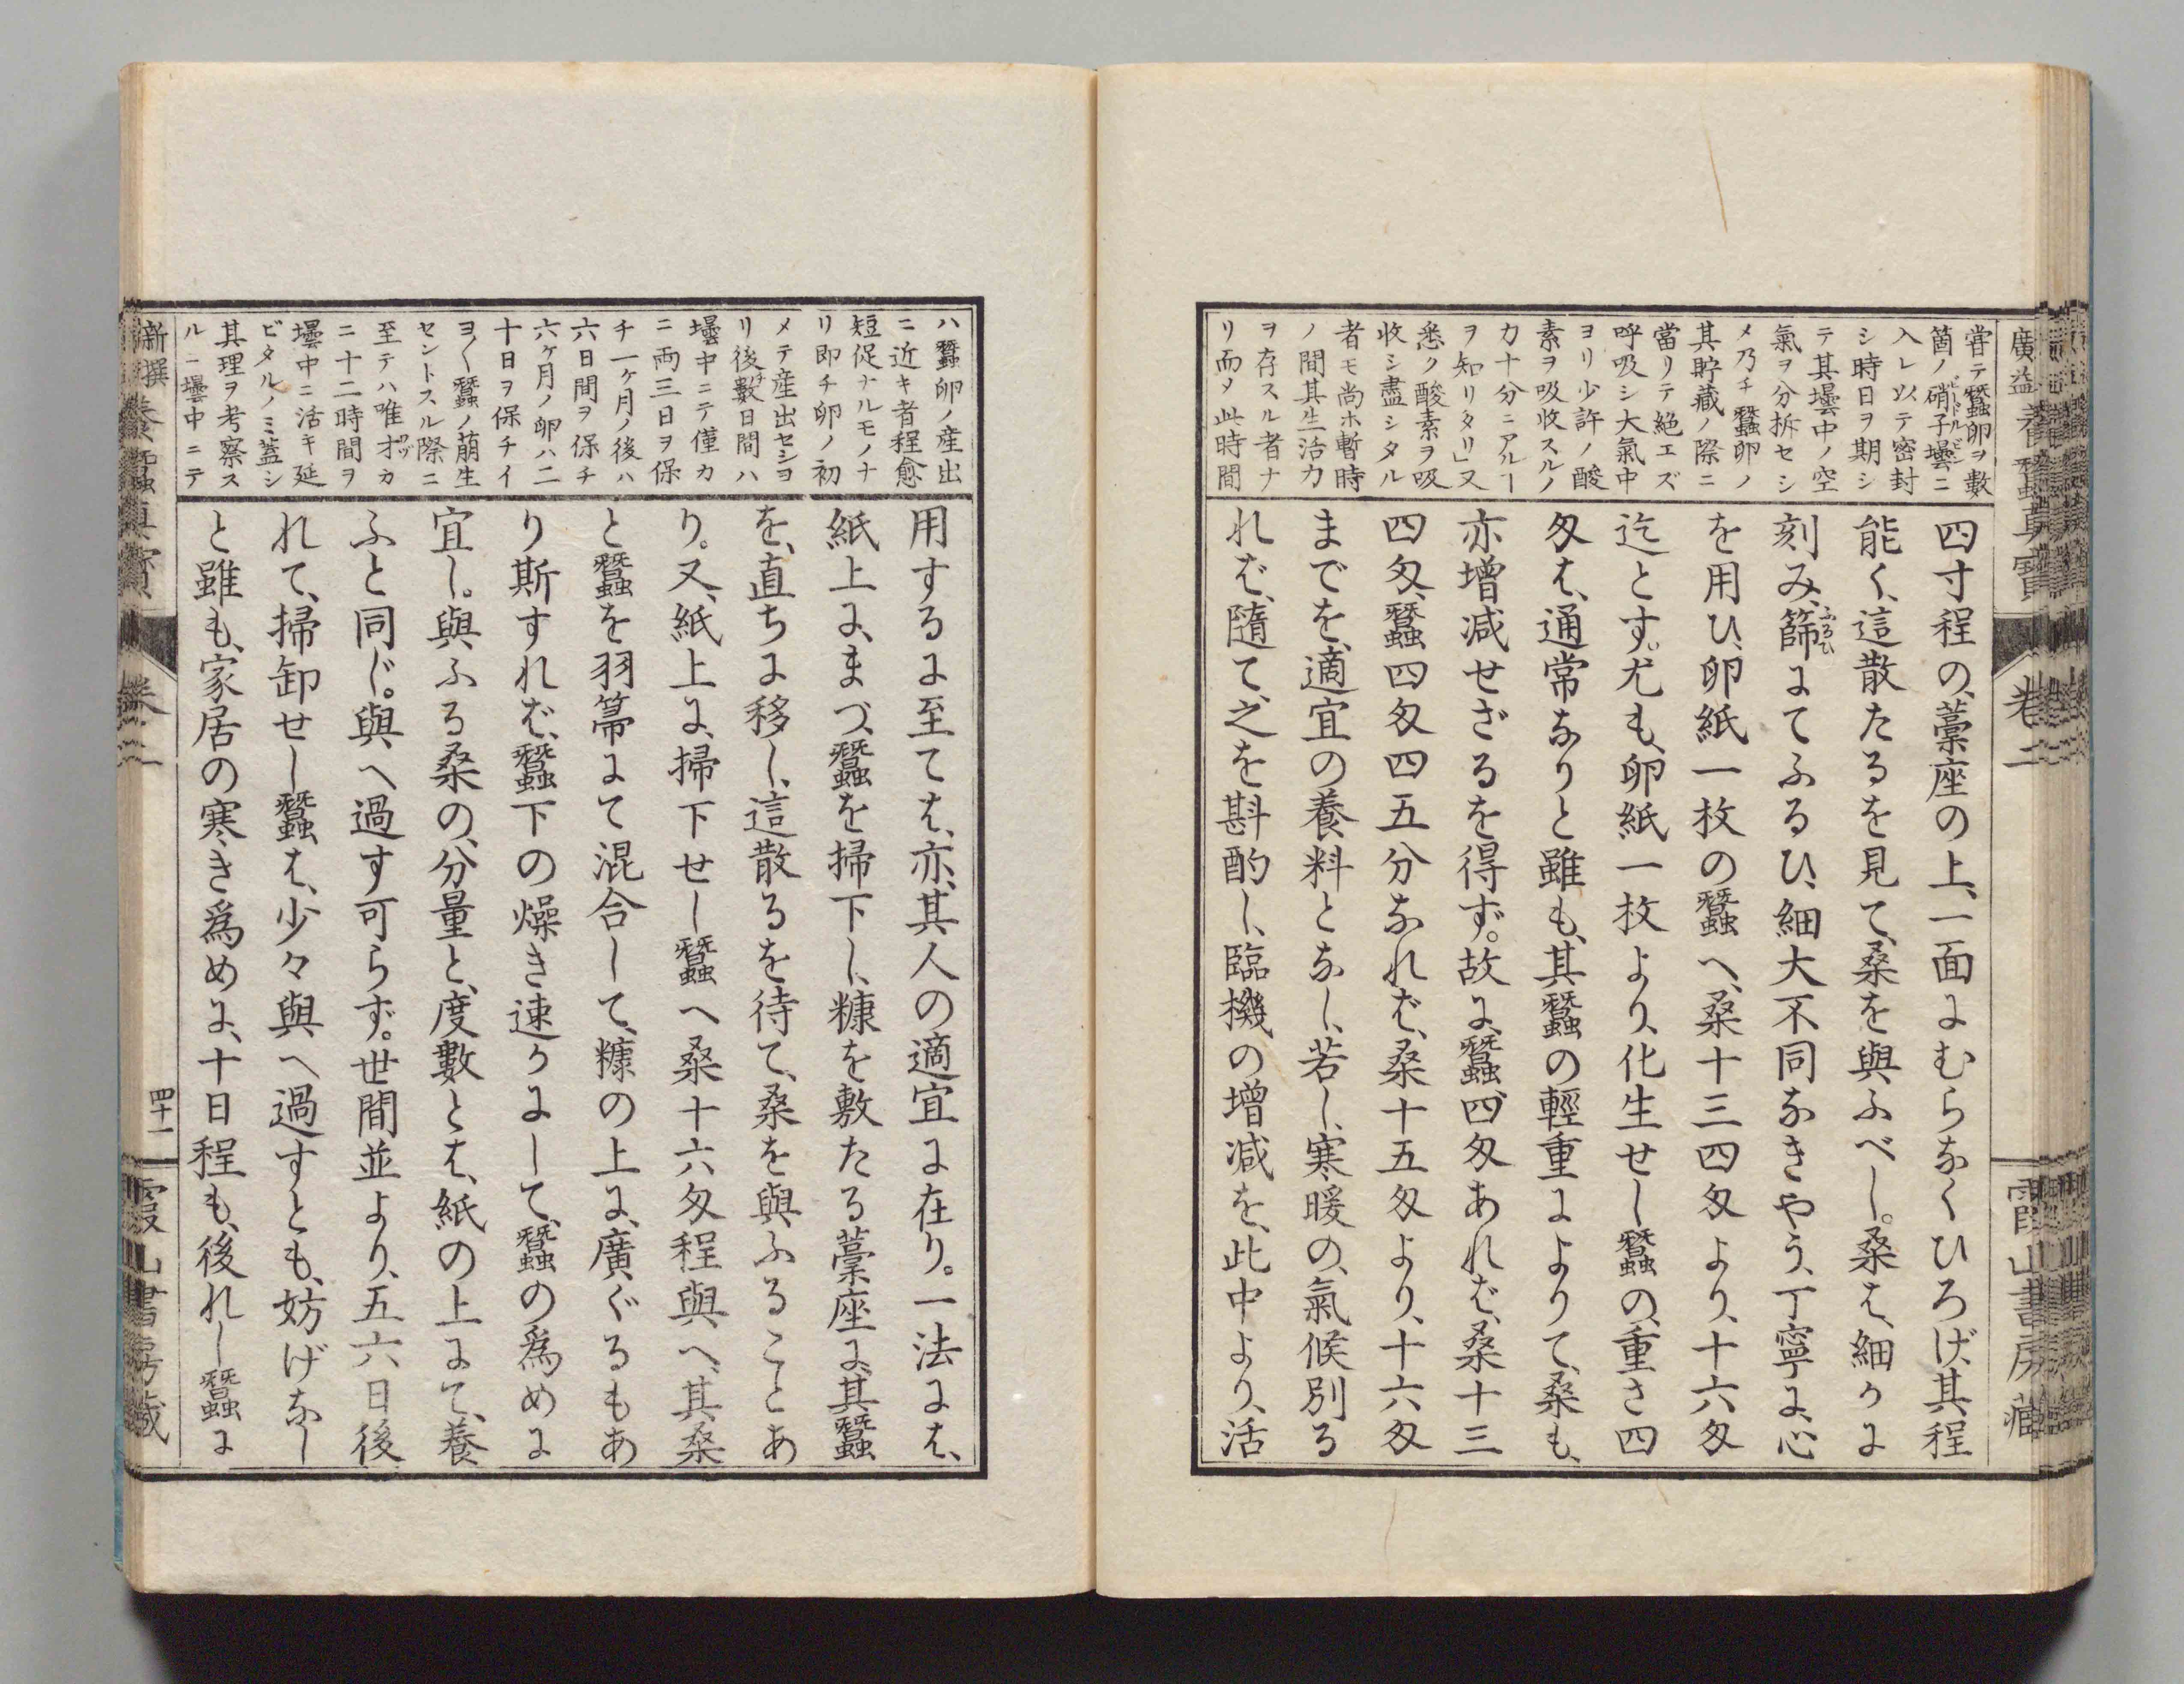 嘗テ蠶卵ヲ數
箇ノ硝子壜ニ
入レ以テ密封
シ時日ヲ期シ
テ其壜中ノ空
氣ヲ分拆セシ
メ乃チ蠶卵ノ
其貯藏ノ際ニ
當リテ絶エズ
呼吸シ大氣中
ヨリ少許ノ酸
素ヲ吸收スルノ
力十分ニアルヿ
ヲ知リタリ」又
悉ク酸素ヲ吸
收シ盡シタル
者モ尚ホ暫時
ノ間其生活力
ヲ存スル者ナ
リ而メ此時間
四寸程の、藁座の上、一面にむらなくひろげ、其程
能く、這散たるを見て、桑を與ふべし。桑は、細かに
刻み、篩にてふるひ、細大不同なきやう、丁寧に、心
を用ひ、卵紙一枚の蠶へ、桑十三四匁より、十六匁
迄とす。尤も、卵紙一枚より、化生せし蠶の、重さ四
匁は、通常なりと雖も、其蠶の輕重によりて、桑も、
亦増減せざるを得ず。故に、蠶四匁あれば、桑十三
四匁、蠶四匁四五分なれば、桑十五匁より、十六匁
までを、適宜の養料となし、若し、寒暖の、氣候別る
れば、隨て、之を斟酌し、臨機の増減を、此中より、活
廣益
養蠶眞寶
卷二
霞山書房藏
ハ蠶卵ノ産出
ニ近キ者程愈
短促ナルモノナ
リ即チ卵ノ初
メテ産出セシヨ
リ後數日間ハ
壜中ニテ僅カ
ニ両三日ヲ保
チ一ヶ月ノ後ハ
六日間ヲ保チ
六ヶ月ノ卵ハ二
十日ヲ保チイ
ヨ〱蠶ノ萠生
セントスル際ニ
至テハ唯才カ
ニ十二時間ヲ
壜中ニ活キ延
ビタルノミ蓋シ
其理ヲ考察ス
ルニ壜中ニテ
用するに至ては、亦、其人の適宜に在り。一法には、
紙上に、まづ、蠶を掃下し、糠を敷たる藁座に、其蠶
を、直ちに移し、這散るを待て、桑を與ふることあ
り。又、紙上に、掃下せし蠶へ桑十六匁程與へ、其桑
と蠶を羽箒にて混合して、糠の上に、廣ぐるもあ
り斯すれば、蠶下の燥き速かにして、蠶の爲めに
宜し。與ふる桑の、分量と、度數とは、紙の上にて、養
ふと同じ。與へ過す可らず。世間並より、五六日後
れて、掃卸せし蠶は、少々與へ過すとも、妨げなし
と雖も、家居の寒き爲めに、十日程も、後れし蠶に
新撰
養蠶眞寶
卷二
四十一
霞山書房藏